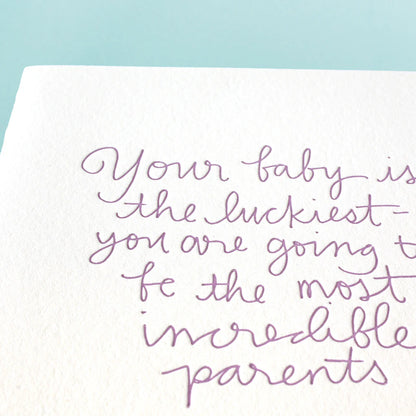 Your baby is
the luckiest-
you are going t
be the most
incredible
parents